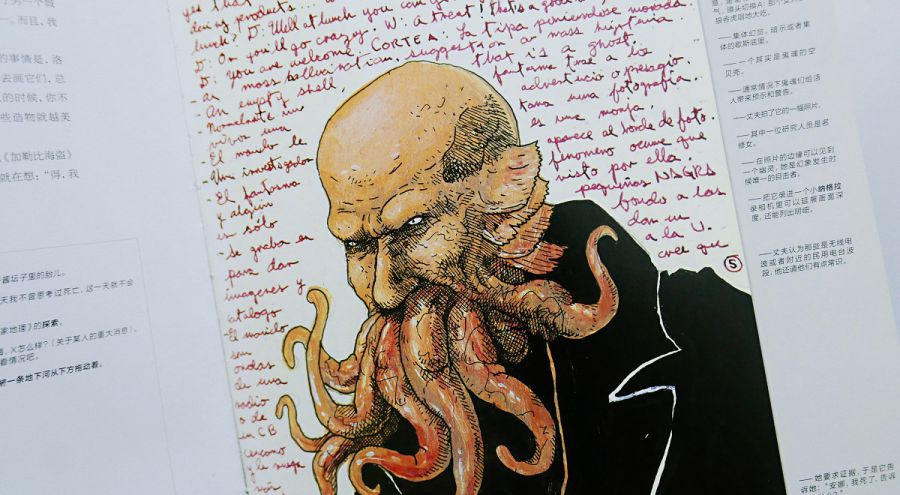 一另一个最
。而且，我
的事情是，洛
去画它们，总
的时候，你不
些造物就越美
《加勒比海盗》
就在想：“得，我
酱坛子里的胎儿。
天我不曾思考过死亡，这一天就不会
家地理》的探索。
X怎么样？（关于某人的重大消息）。
看情况吧。
第一条地下河从下方拖动着。
yes that
doing products
lunch? D: Well at lunch you can go
D: On you'll go crazy. W: A treat! that's a good
D: You are welcome. CORTE A: La tipa poniendose morada.
- mass hallucination, suggestion or mass hysteria
- An empty shell, that it's a ghost.
- Normalmente un fantasma trae a los
vivos una advertencia o presagio.
- El marido le toma una fotografía.
- Una investigadora es una monja.
- El fantasma aparece al borde de foto.
y alguien fenomeno ocurre que
es sólo visto por ella.
- Se graba en pequeñas NAGRA
para dar fondo a las
imagenes y dan un
catálogo a la U.
- El marido cree que
son
ondas
de una
radio
o de
un CB
cercano
y les ruega
5
气。镜头切换A：那个女人
狼吞虎咽地大吃。
——集体幻觉，暗示或者集
体的歇斯底里。
——一个其实是鬼魂的空
贝壳。
——通常情况下鬼魂们给活
人带来预示和警告。
——丈夫拍了它的一幅照片。
——其中一位研究人员是名
修女。
——在照片的边缘可以见到
一个幽灵，她是幻象发生时
候唯一的目击者。
——把它录进一个小纳格拉
录相机里可以延展画面深
度，还能列出明细。
——丈夫认为那些是无线电
波或者附近的民用电台波
段，他还请他们有点常识。
——她要求证据，于是它告
诉她：“安娜，我死了，告诉